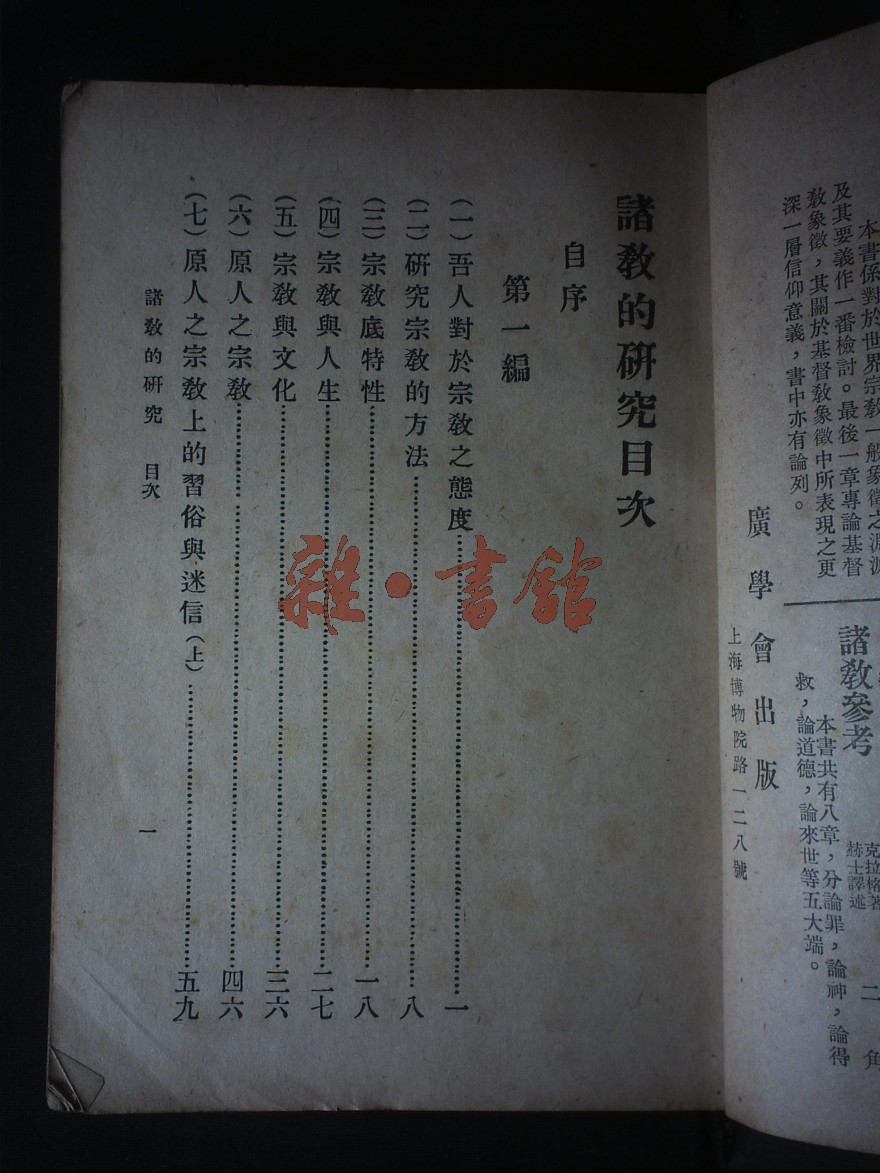 本書係對於世界宗教一般象徵之淵源
及其要義作一番檢討。最後一章專論基督
教象徵，其關於基督教象徵中所表現之更
深一層信仰意義，書中亦有論列。
諸教參考
克拉格著
赫士譯述
二角
本書共有八章，分論罪，論神，論得
救，論道德，論來世等五大端。
廣學會出版
上海博物院路一二八號
諸教的研究目次
自序
第一編
（一）吾人對於宗教之態度……一
（二）研究宗教的方法……八
（三）宗教底特性……一八
（四）宗教與人生……二七
（五）宗教與文化……三六
（六）原人之宗教……四六
（七）原人之宗教上的習俗與迷信（上）……五九
諸教的研究 目次
一
雜·書館